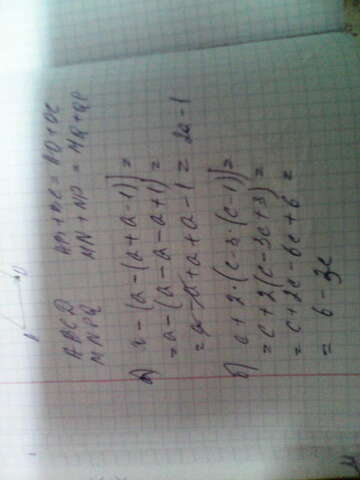 ABCD AD + DC = BD + DC
MNPQ MN + NP = MQ + QP
a) a - (a - (a + a - 1)) =
= a - (a - a - a + 1) =
= a - a + a + a - 1 = 2a - 1
б) c + 2 · (c - 3 · (c - 1)) =
= c + 2(c - 3c + 3) =
= c + 2c - 6c + 6 =
= 6 - 3c